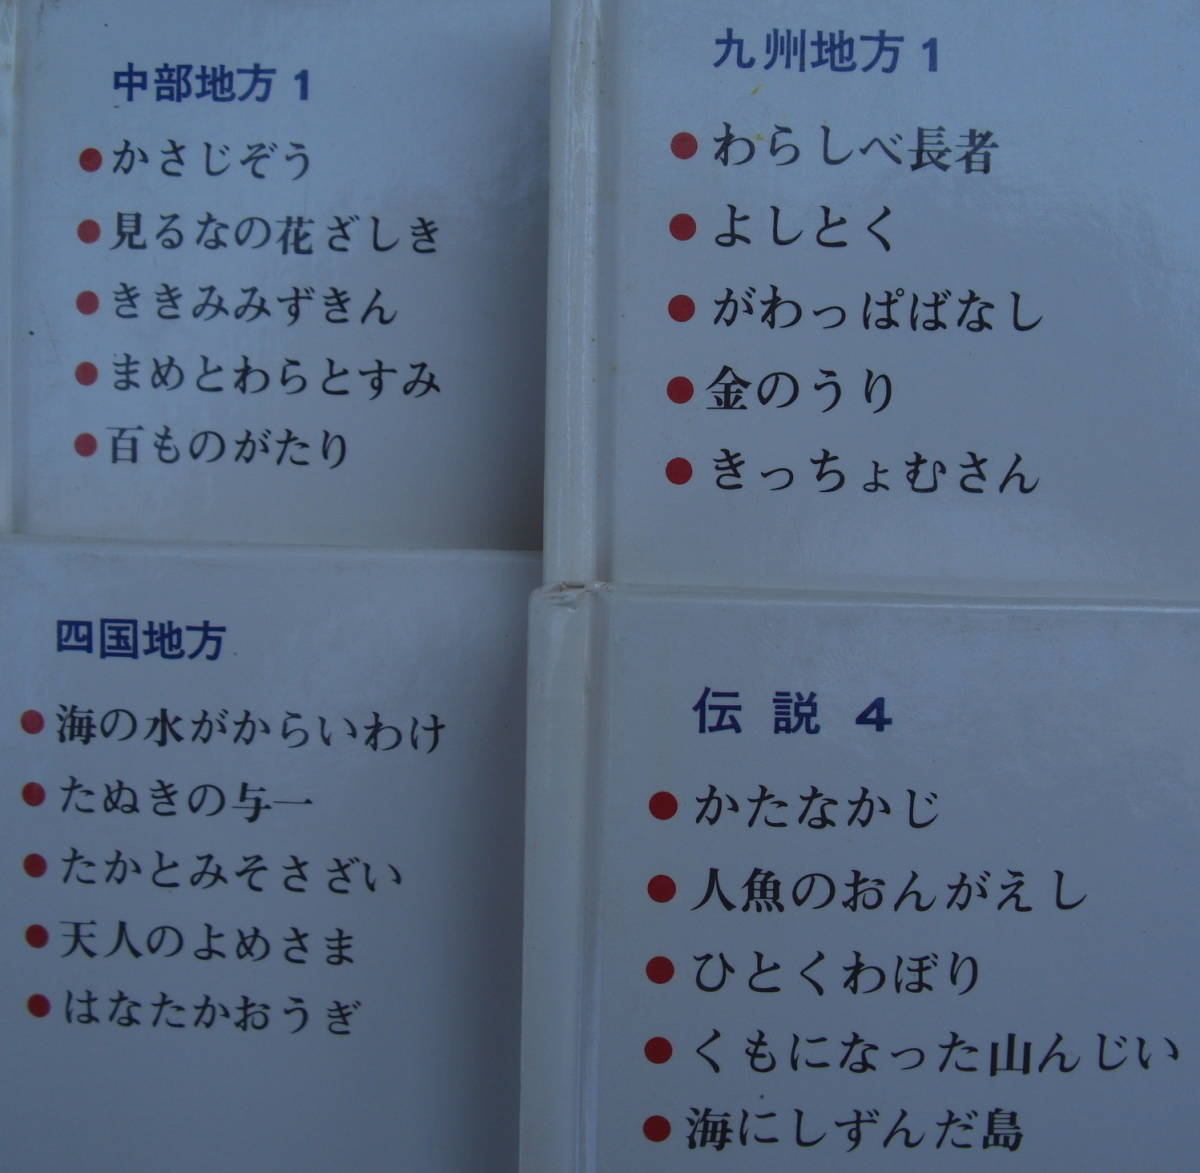 中部地方 1
●かさじぞう
●見るなの花ざしき
●ききみみずきん
●まめとわらとすみ
●百ものがたり
九州地方 1
●わらしべ長者
●よしとく
●がわっぱばなし
●金のうり
●きっちょむさん
四国地方
●海の水がからいわけ
●たぬきの与一
●たかとみそさざい
●天人のよめさま
●はなたかおうぎ
伝説 4
●かたなかじ
●人魚のおんがえし
●ひとくわぼり
●くもになった山んじい
●海にしずんだ島